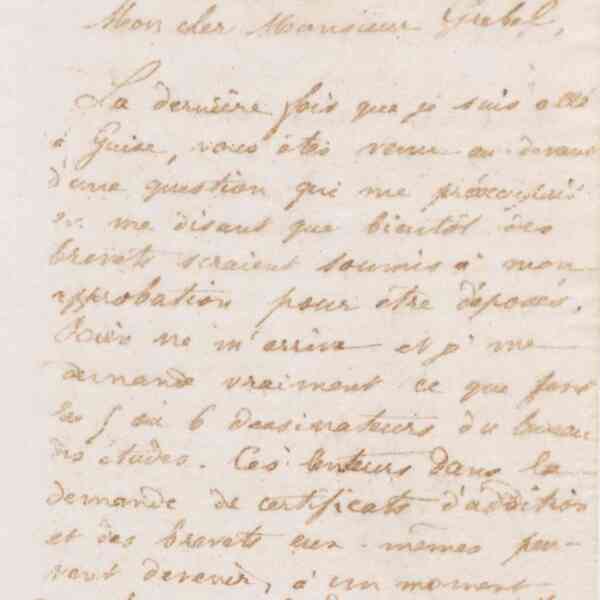 Mon cher Monsieur Grebel,
La dernière fois que je suis allé
à Guise, vous êtes venu au devant
d'une question qui me préoccupait
en me disant que bientôt des
brevets seraient soumis à mon
approbation pour être déposés.
Rien ne m'arrive et je me
demande vraiment ce que font
les 5 ou 6 dessinateurs du bureau
des études. Ces lenteurs dans la
demande de certificats d'addition
et des brevets eux-mêmes peu-
vent devenir, à un moment